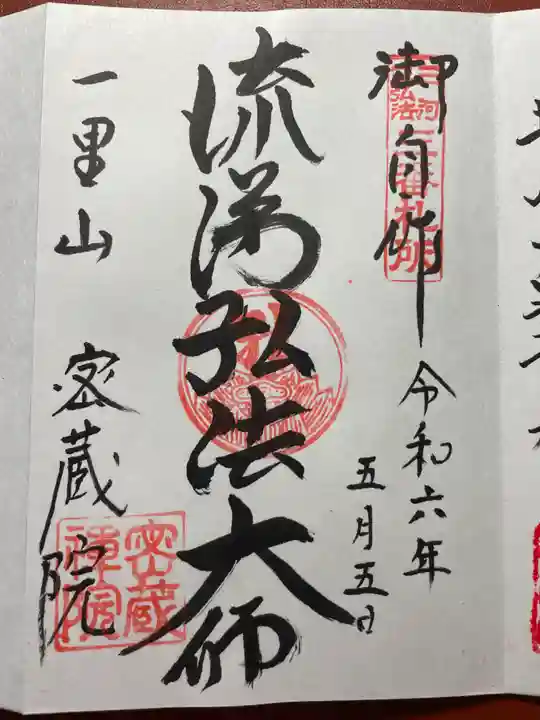 御自作
令和六年
五月五日
流涕弘法大師
一里山 密蔵院
三河
弘法
三番札所
密蔵
禅院